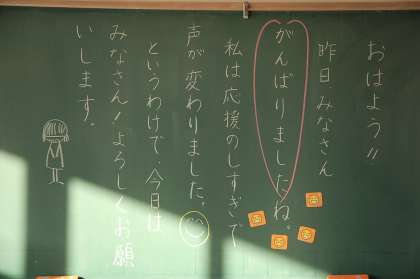 おはよう!!
昨日、みなさん
がんばりましたね。
私は応援のしすぎで
声が変わりました。
というわけで、今日は
みなさん!よろしくお願
いします。